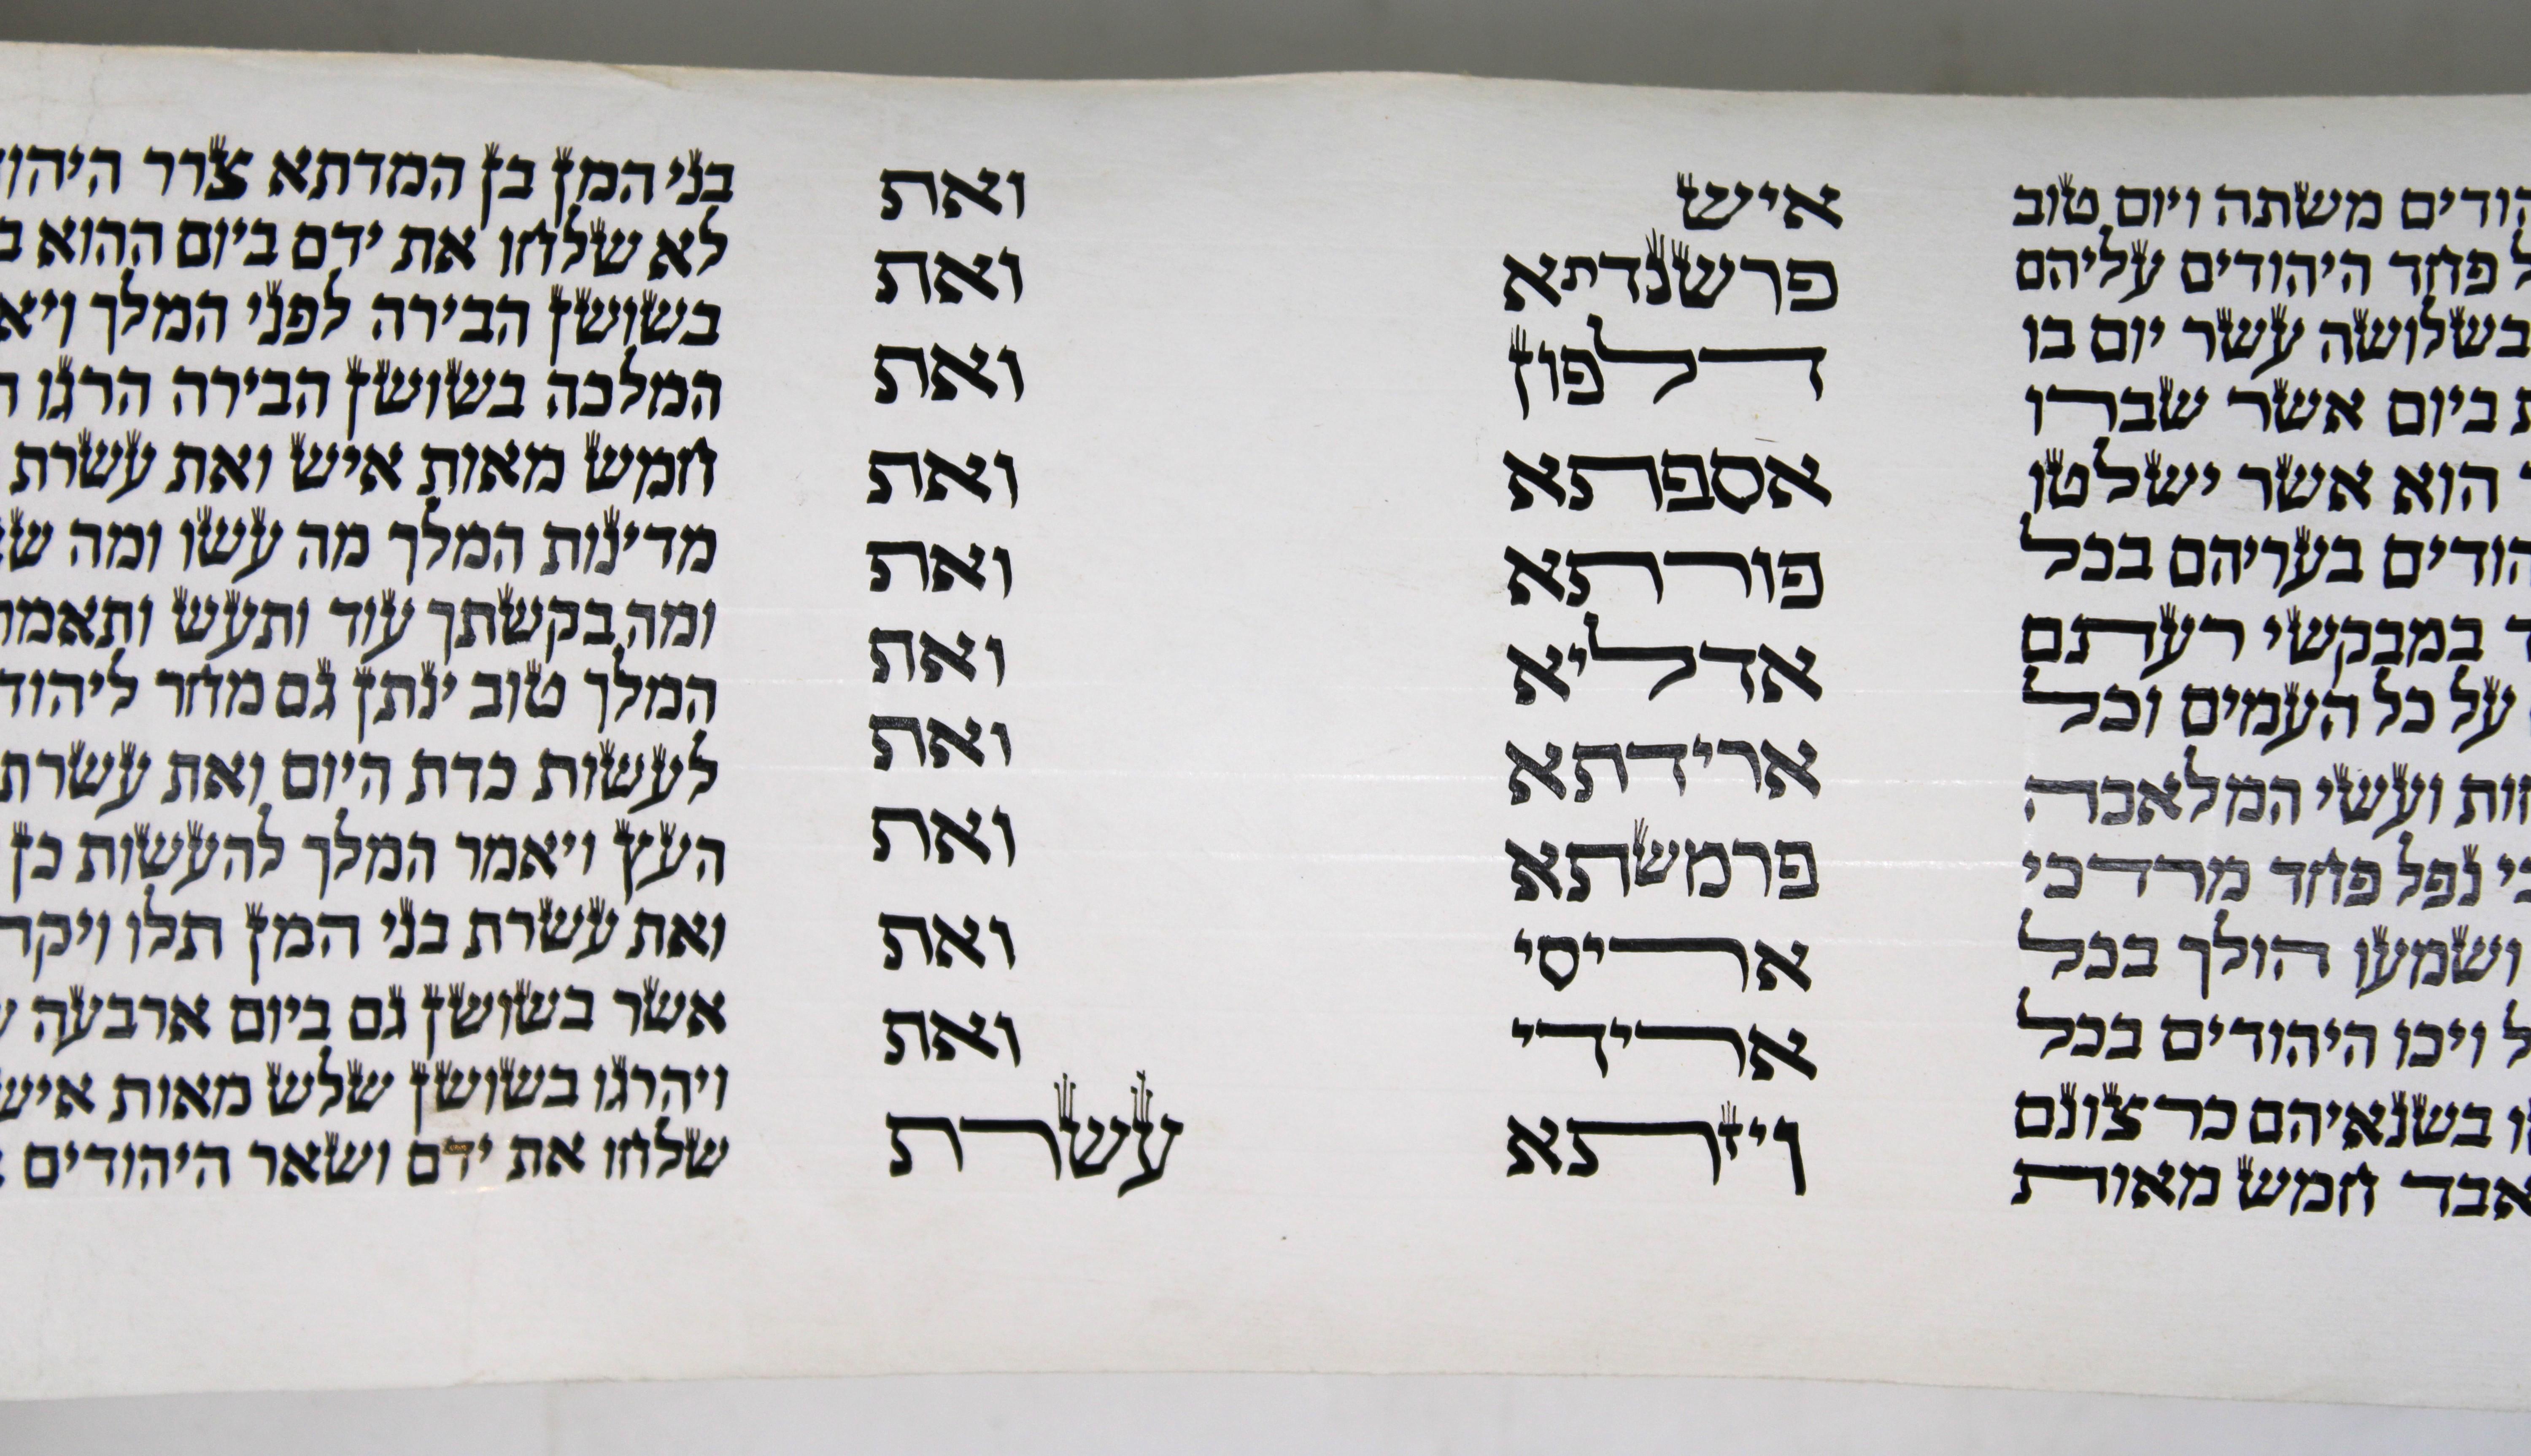 הודים משתה ויום טוב
פחד היהודים עליהם
בשלושה עשר יום בו
ביום אשר שברו
הוא אשר ישלטו
הודים בעריהם בכל
במבקשי רעתם
על כל העמים וכל
ועשי המלאכה
כי נפל פחד מרדכי
ושמעו הולך בכל
ויכו היהודים בכל
בשנאיהם כרצונם
אבד חמש מאות
איש ואת
פרשנדתא ואת
דלפון ואת
אספתא ואת
פורתא ואת
אדליא ואת
ארידתא ואת
פרמשתא ואת
אריסי ואת
ארידי ואת
ויזתא עשרת
בני המן בן המדתא צרר היהו
לא שלחו את ידם ביום ההוא
בשושן הבירה לפני המלך ויא
המלכה בשושן הבירה הרגו
חמש מאות איש ואת עשרת
מדינות המלך מה עשו ומה
ומה בקשתך עוד ותעש ותאמר
המלך טוב ינתן גם מחר ליהוד
לעשות כדת היום ואת עשרת
העץ ויאמר המלך להעשות כן
ואת עשרת בני המן תלו ויקה
אשר בשושן גם ביום ארבעה
ויהרגו בשושן שלש מאות איש
שלחו את ידם ושאר היהודים